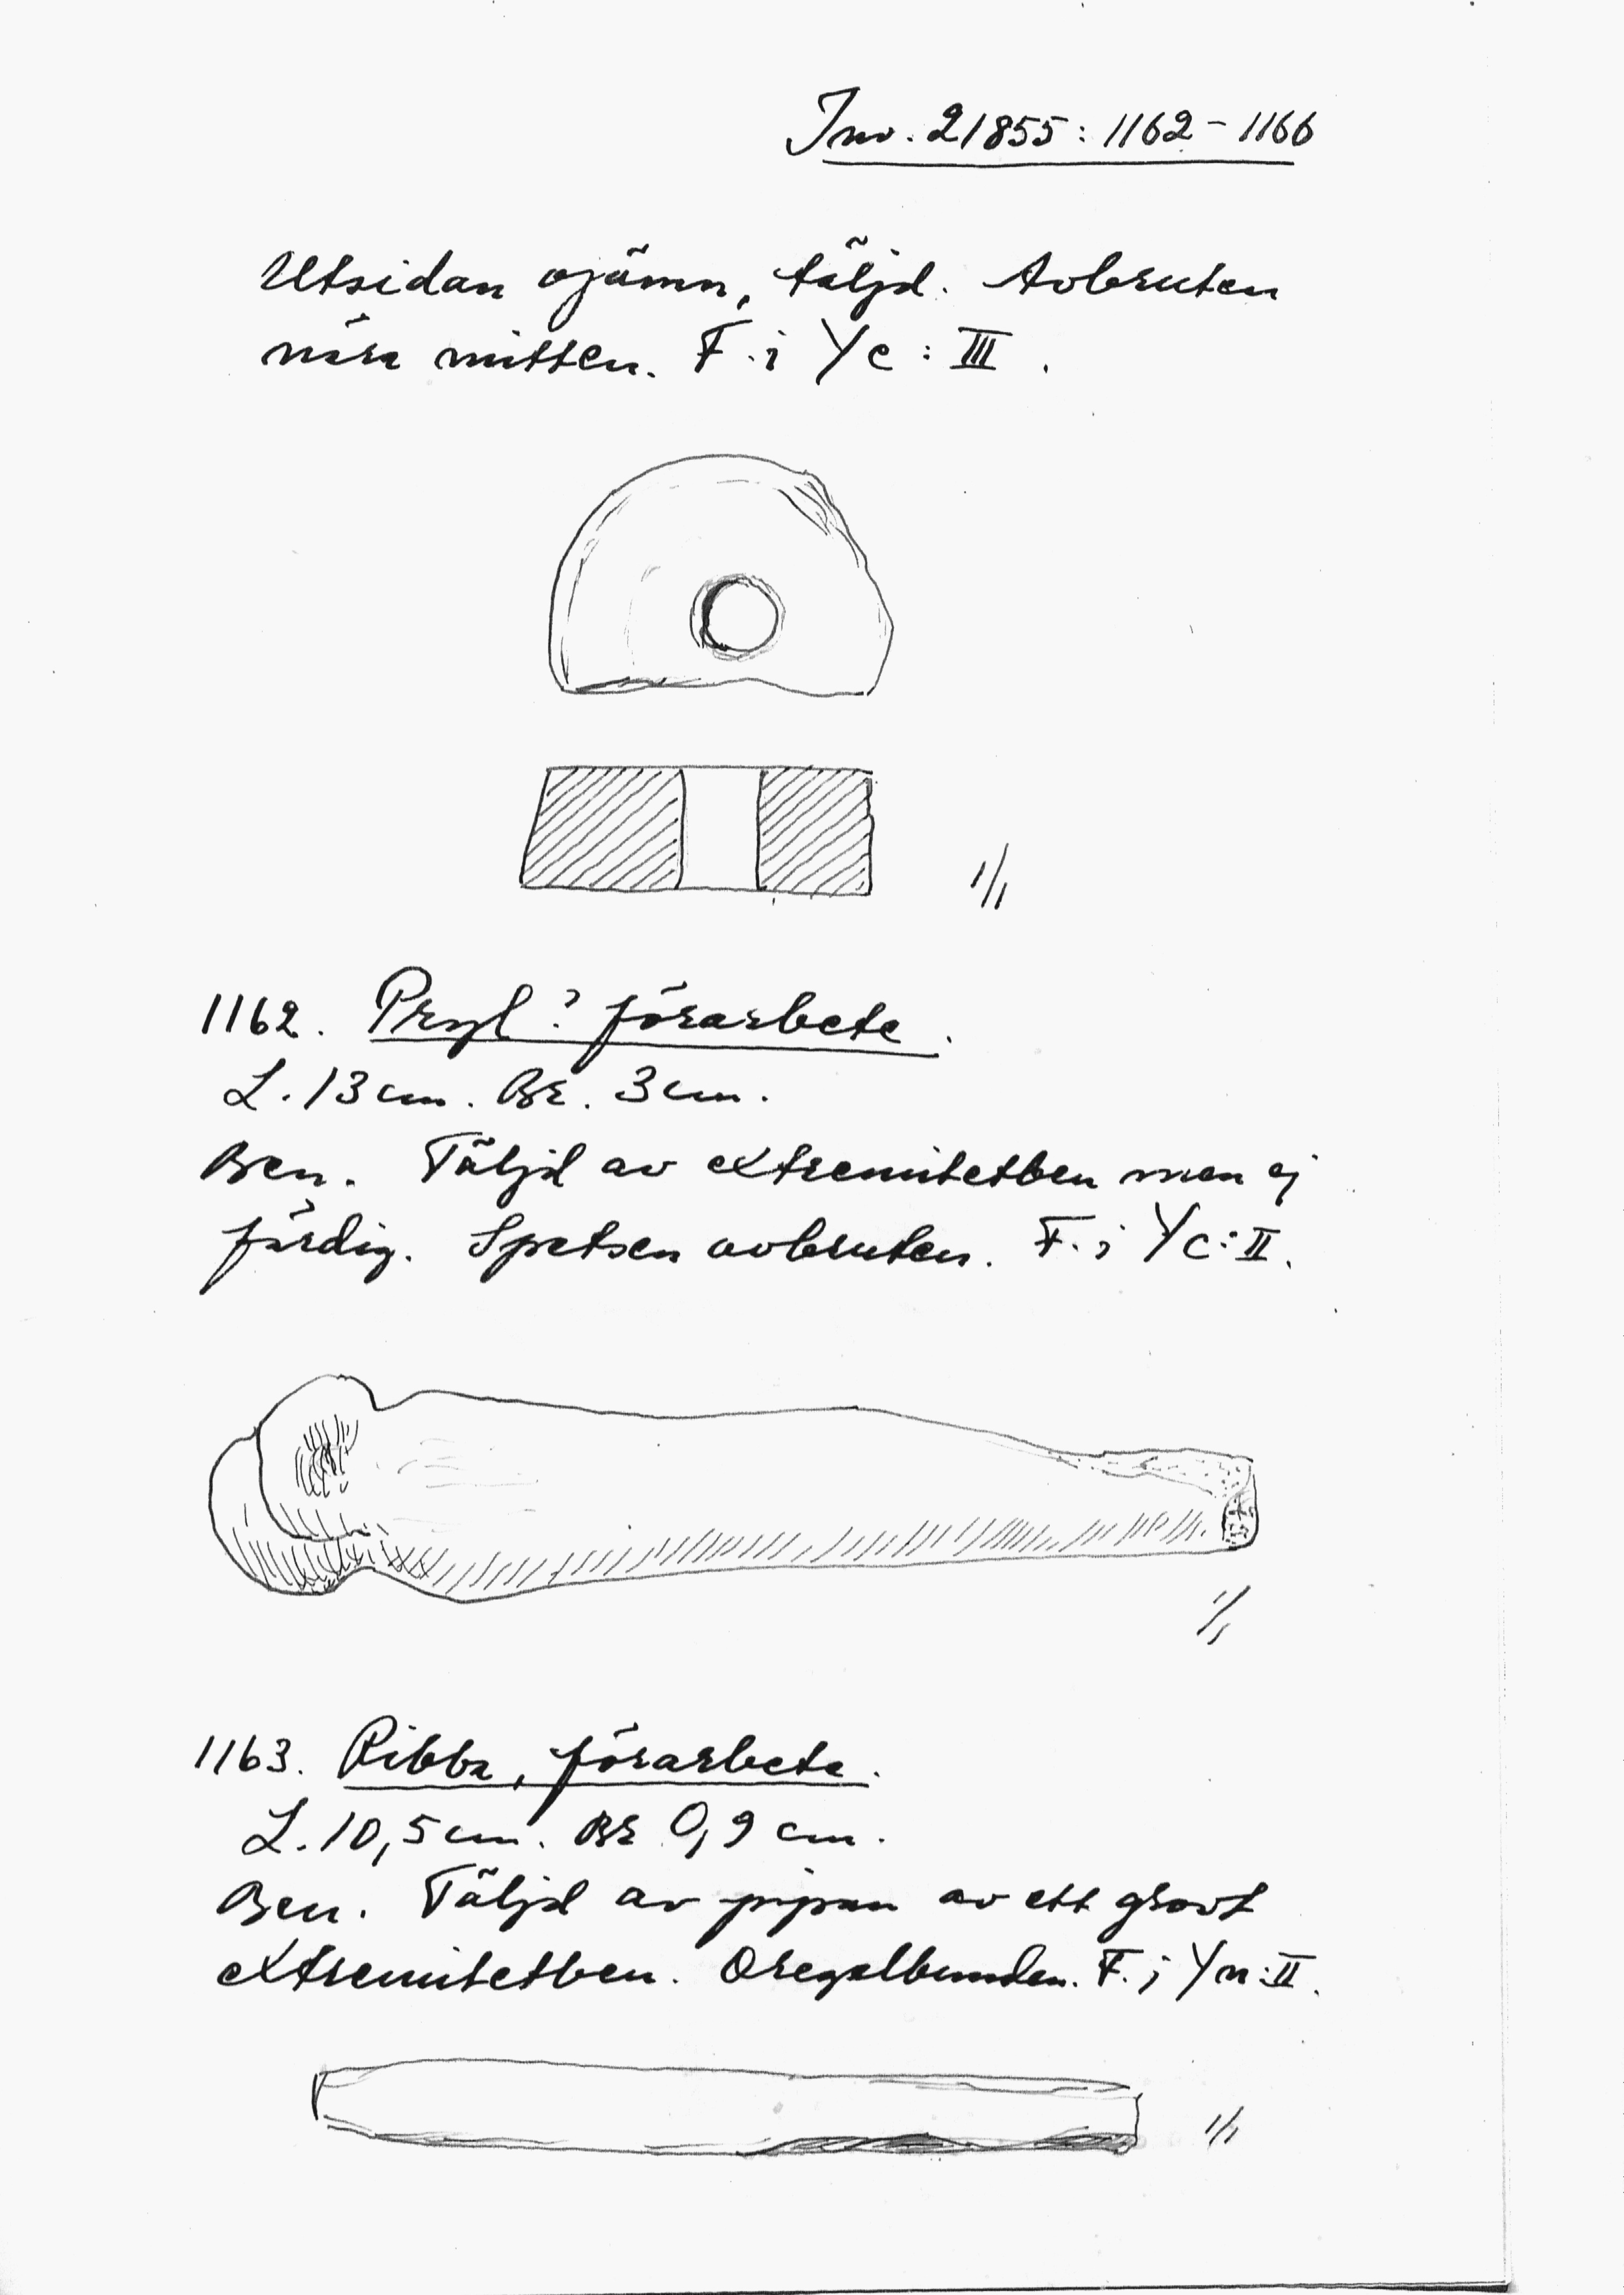 Inv. 21855:1162-1166
Utsidan ojämn, täljd. Avbruten
nära mitten. F. i Yc:III.
1/1
1162. Pryl? förarbete.
L. 13 cm. Br. 3 cm.
Ben. Täljd av extremitetben men ej
färdig. Spetsen avbruten. F. i Yc:II.
1/1
1163. Ribba, förarbete.
L. 10,5 cm. Br 0,9 cm.
Ben. Täljd av pipan av ett grovt
extremitetben. Oregelbunden. F. i Yn:II.
1/1